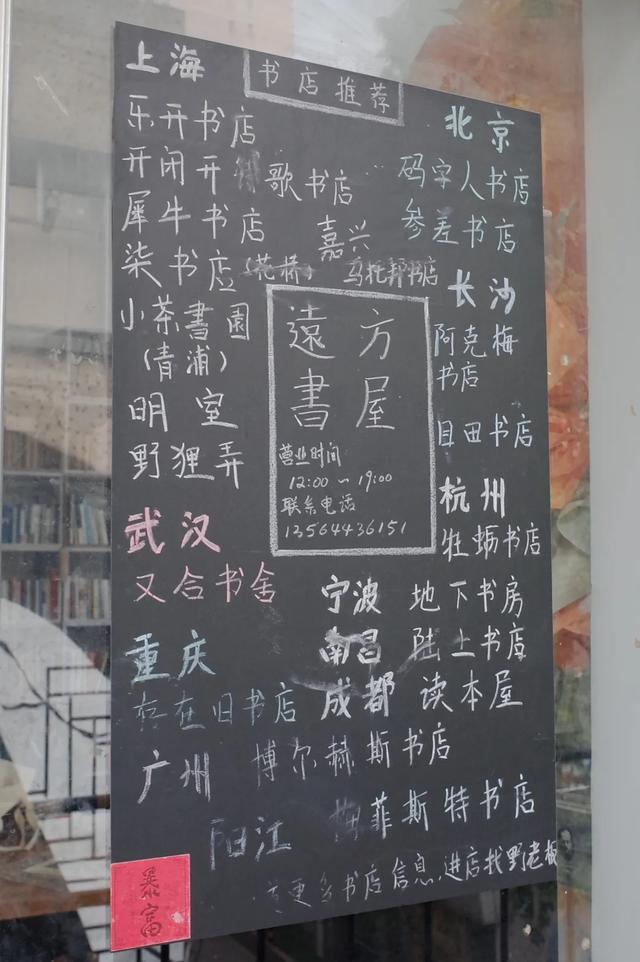 书店推荐
上海
乐开书店
开闭开 歌书店
犀牛书店
柒书店（花桥）
小茶書園
（青浦）
明室
野狸弄
嘉兴
乌托邦书店
北京
码字人书店
参差书店
长沙
阿克梅
书店
目田书店
杭州
牡蛎书店
遠方
書屋
营业时间
12:00～19:00
联系电话
13564436151
武汉
又合书舍
宁波 地下书房
南昌 陆上书店
成都 读本屋
重庆
存在旧书店
广州 博尔赫斯书店
阳江 梅菲斯特书店
更多书店信息,进店找野老板
暴富